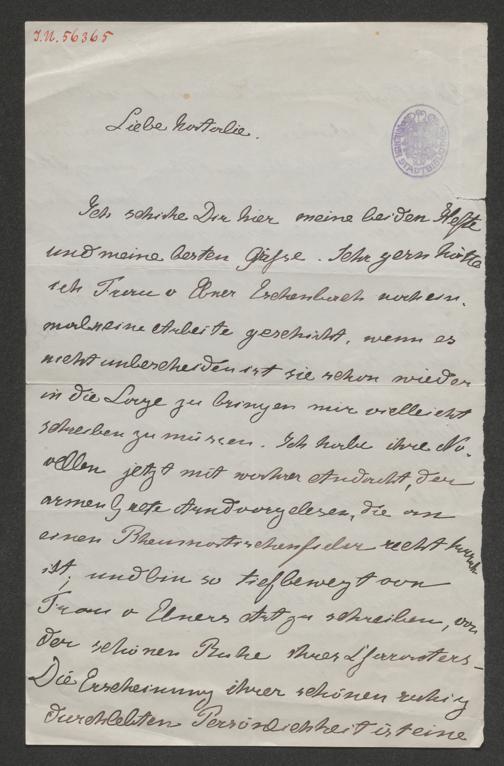 I.N. 56365
Liebe Natalie.
Ich schicke Dir hier meine beiden Hefte
und meine besten Grüsse. Sehr gern hätte
ich Frau v Ebner Eschenbach noch ein-
mal meine Arbeite geschickt, wenn es
nicht unbescheiden ist sie schon wieder
in die Lage zu bringen mir vielleicht
schreiben zu müssen. Ich habe ihre No-
vellen jetzt mit wahrer Andacht, der
armen Grete vorgelesen, die an
einem Rheumatischenfieber recht krank
ist, und bin so tief bewegt von
Frau v Ebners Art zu schreiben, von
der schönen Ruhe ihres Charakters –
Die Erscheinung ihrer schönen ruhig
durchlebten Persönlichkeit ist eine